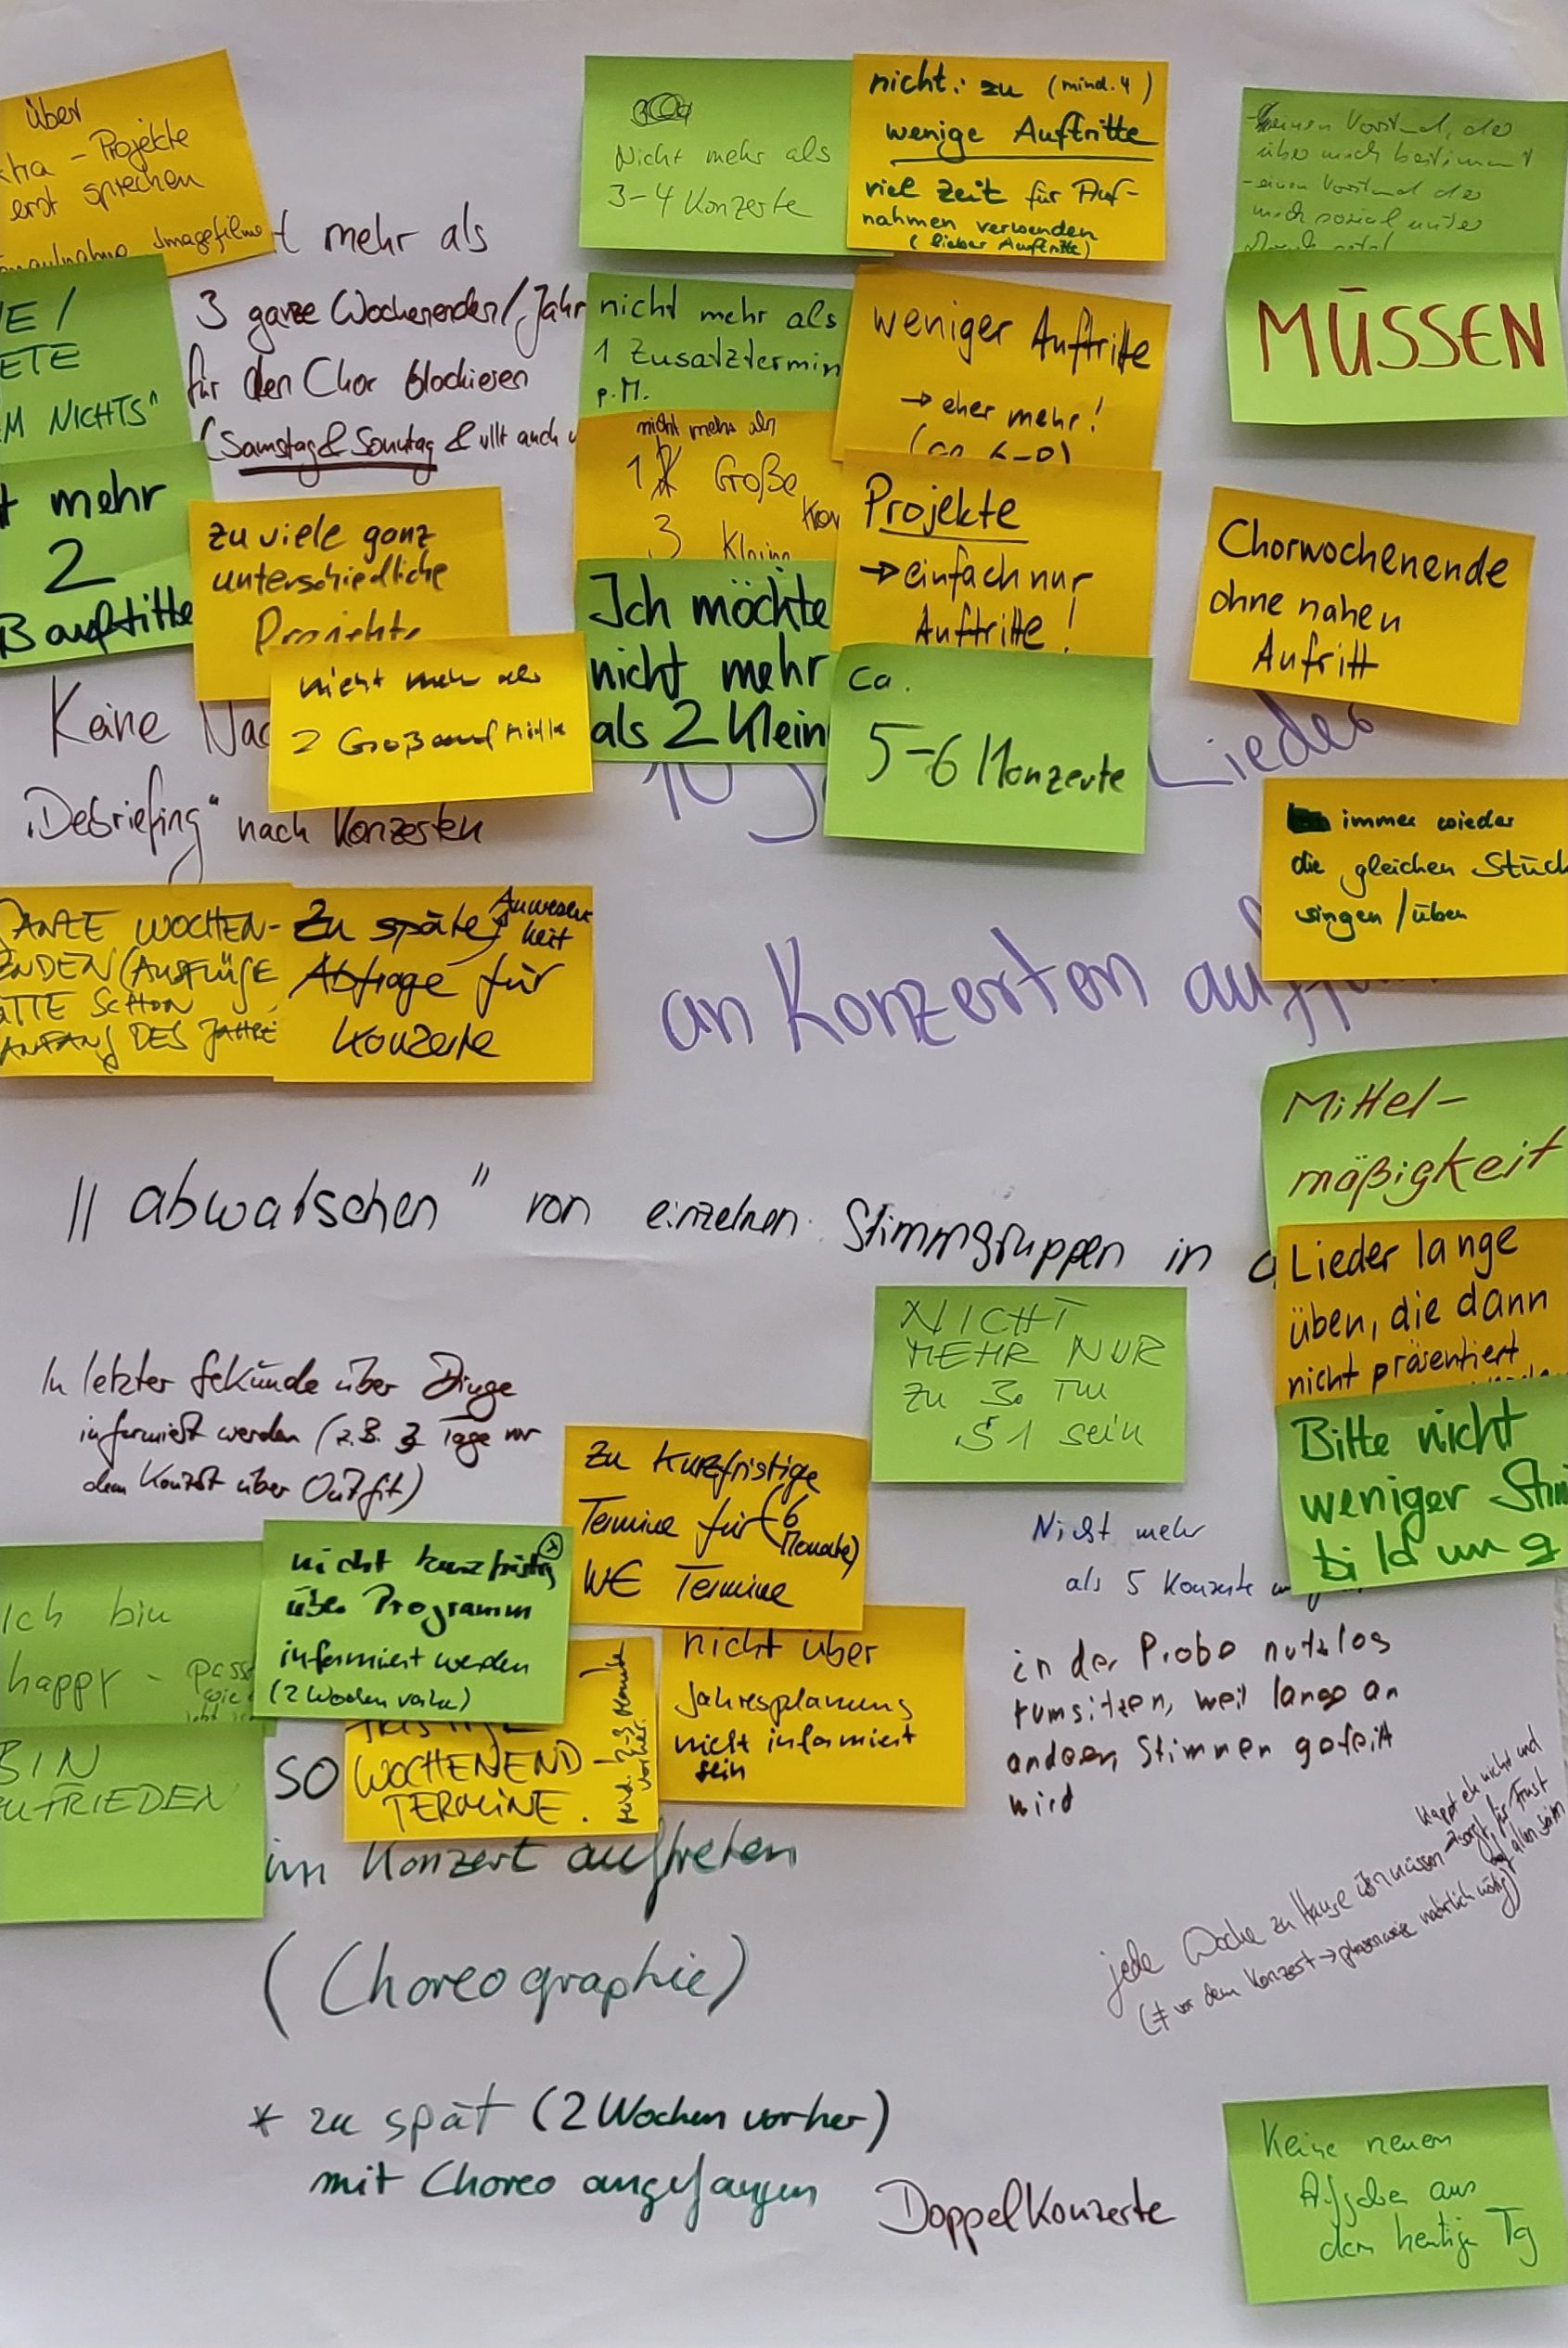 über
Projekte
erst sprechen
Imagefilme
NICHTS"
mehr
2
mehr als
3 ganze Wochenenden/Jahr
für den Chor blockieren
(Samstag & Sonntag & vllt auch
zu viele ganz
unterschiedliche
Projekte
nicht mehr als
2 Großauftritte
Keine
"Debriefing" nach Konzerten
WOCHEN-
ENDEN (AUSFLÜGE
SCHON
ANFANG DES JAHRE
Zu späte Anwesen
heit
Abfrage für
Konzerte
Nicht mehr als
3-4 Konzerte
nicht mehr als
1 Zusatztermin
p.M.
nicht mehr als
1 Große
3
Ich möchte
nicht mehr
als 2 Klein
nicht: zu (mind. 4)
wenige Auftritte
viel Zeit für Auf-
nahmen verwenden
(lieber Auftritte)
weniger Auftritte
→ eher mehr!
Projekte
→ einfach nur
Auftritte!
ca.
5-6 Konzerte
10 Lieder
an Konzerten
Vorstand, der
über mich bestimmt
- einen Vorstand der
mich sozial unter
MÜSSEN
Chorwochenende
ohne nahen
Aufritt
immer wieder
die gleichen Stück
singen/üben
Mittel-
mäßigkeit
"abwatschen" von einzelnen Stimmgruppen in
Lieder lange
üben, die dann
nicht präsentiert
Bitte nicht
weniger Stim
bildung
NICHT
MEHR NUR
zu 3. IM
S1 sein
In letzter Sekunde über Dinge
informiert werden (z.B. 3 Tage vor
dem Konzert über Outfit)
zu Kurzfristige
Termine für (6
Monate)
WE Termine
Ich bin
happy - pass
BIN
ZUFRIEDEN
nicht kurzfristig
über Programm
informiert werden
(2 Wochen vorher)
SO
WOCHENEND-
TERMINE.
mind. 2-3 Monate
vorher.
nicht über
Jahresplanung
nicht informiert
sein
Nicht mehr
als 5 Konzerte
in der Probe nutzlos
rumsitzen, weil lange an
anderen Stimmen gefeilt
wird
im Konzert auftreten
(Choreographie)
jede Woche zu Hause üben müssen → sorgt für Frust
klappt eh nicht und
(≠ vor dem Konzert → phasenweise natürlich nötig)
* zu spät (2 Wochen vorher)
mit Choreo angefangen
Doppelkonzerte
Keine neuen
Afgaben aus
dem heutige Tg